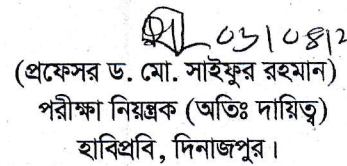 03/08/2
(প্রফেসর ড. মো. সাইফুর রহমান)
পরীক্ষা নিয়ন্ত্রক (অতিঃ দায়িত্ব)
হাবিপ্রবি, দিনাজপুর।